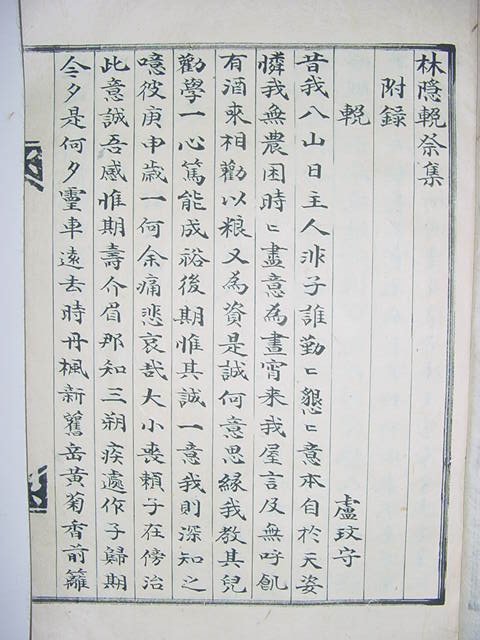 林隱輓祭集
附録
輓
盧玟守
昔我八山日主人非子誰勤〻懇〻意本自於天姿
憐我無農困時〻盡意為晝宵来我屋言及無呼飢
有酒来相勸以粮又為資是誠何意思緣我教其兒
勸學一心篤能成裕後期惟其誠一意我則深知之
噫彼庚申歲一何余痛悲哀哉大小喪賴子在傍治
此意誠吾感惟期壽介眉那知三朔疾遽作子歸期
今夕是何夕靈車遠去時丹楓新舊岳黃菊香前籬